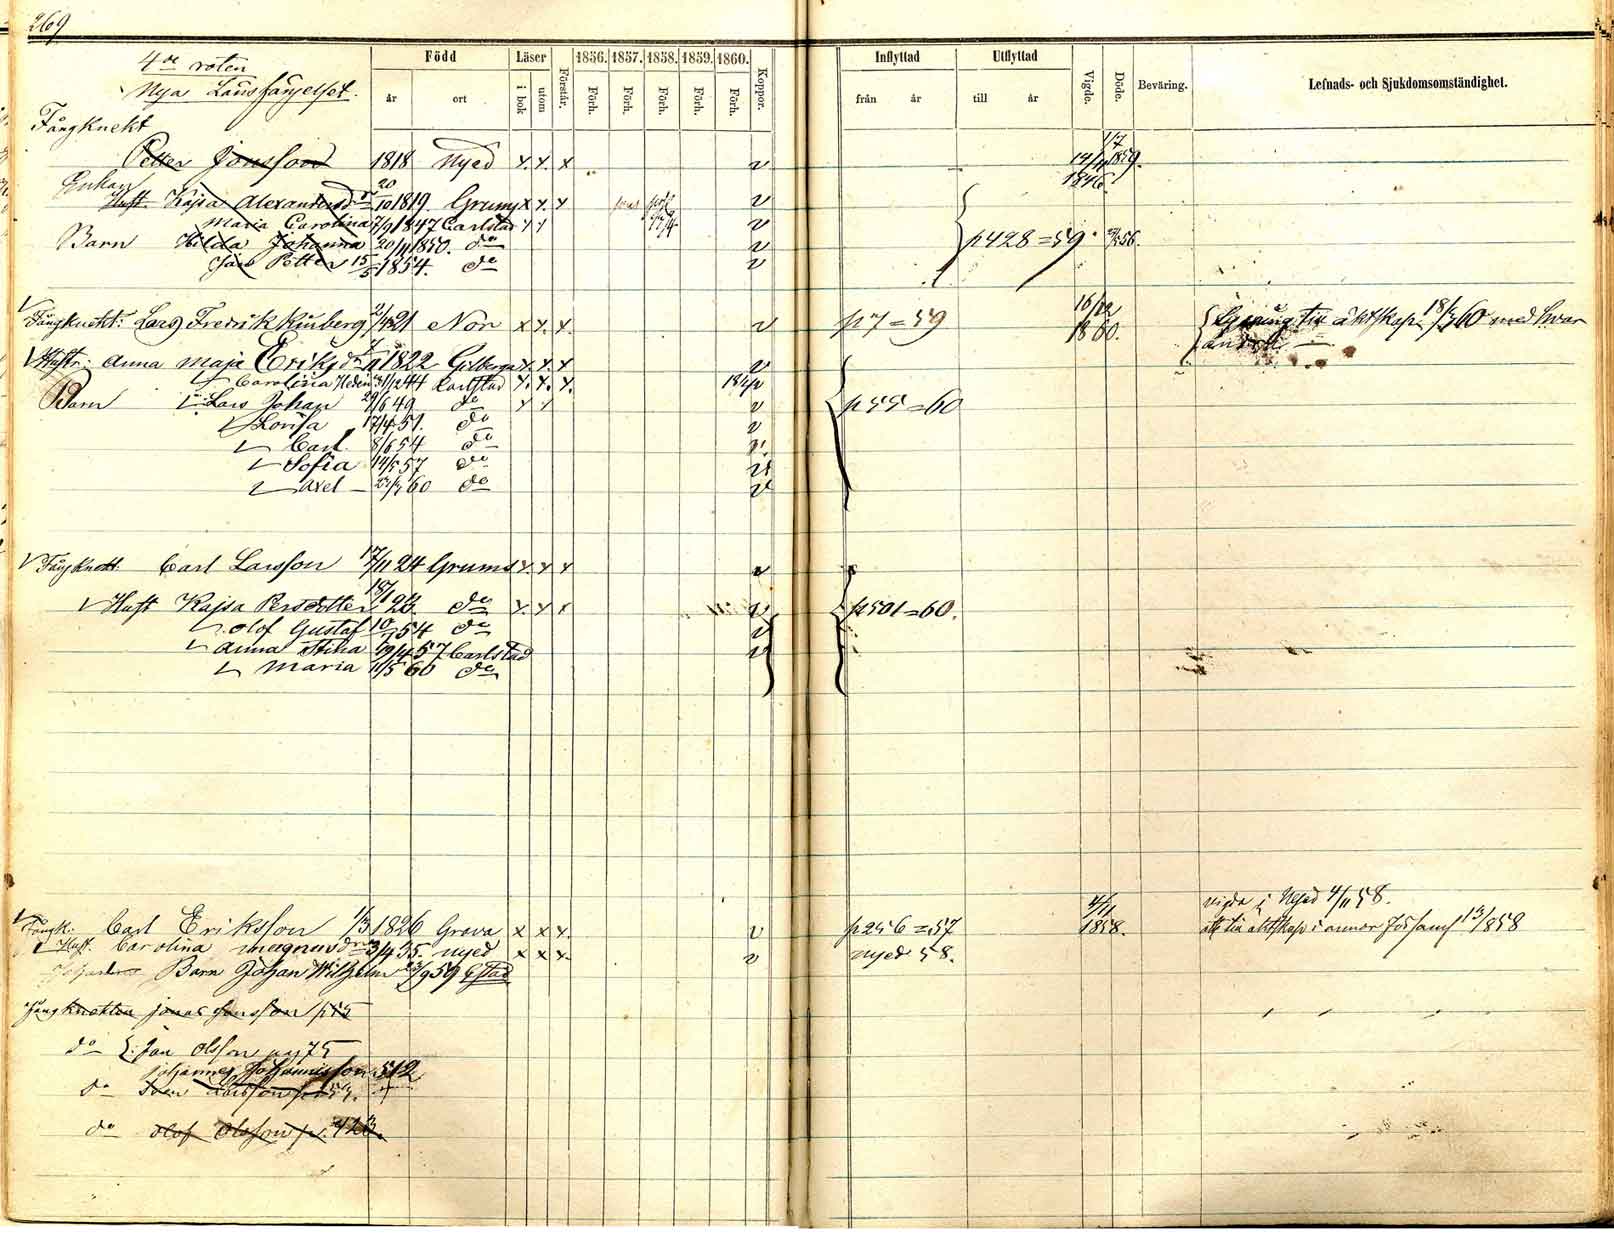 269
4de roten
Nya Länsfängelset.
Född Läser 1856. 1857. 1858. 1859. 1860. Koppor. Inflyttad Utflyttad Vigde. Döde. Beväring. Lefnads- och Sjukdomsomständighet.
år ort i bok utom Förstår. Förh. Förh. Förh. Förh. Förh. från år till år
Fångknekt
Petter Jonsson 1818 Nyed x. x. x v 14/11 1846 1/7 1859.
Enkan
Hust. Kajsa Alexandersdr 20/10 1819. Grums x x. x v
Maria Carolina 7/9 1847 Carlstad v
Barn Hilda Johanna 20/11 1850. do v p 428 = 59.
Petter 15/5 1854. do v
Fångknekt: Lars Fredrik 2/4 21 Nor x x. x. v p 7 = 59 16/12 1860. till äktskap 18/60 med hvar
andra
Hustr: Anna Maja Eriksdr 1822 Gilberga x. x. x v
Carolina 31/12 44 Carlstad x. x. x.
Barn Lars Johan 29/6 49 do v p 55 = 60
Lovisa 17/4 51. do v
Carl 8/6 54 do v
Sofia 14/5 57 do v
Axel 60 do v
Fångknekt. Carl Larsson 17/11 24 Grums x. x x v
Hust Kajsa Persdotter 18/1 23. do x. x x v p 501 = 60.
Olof Gustaf 10/1 54 do v
Anna Stina 19/4 57 Carlstad v
Maria 11/5 60 do
vigda i Nyed 4/11 58.
Fångk: Carl Eriksson 1/3 1826 Grava x x x. v p 256 = 57 4/11 1858. till äktskap i annor Församl 13/858
Hust. Carolina Magnusdr 3/4 35. Nyed x x x. v Nyed 58.
Barn Johan Wilhelm 23/9 59 Cstad
Fångknekten Jonas Jonsson p 75
do Jan Olsson pag 75
Johannes Johannisson 512
do Sven Larsson
do Olof Olsson p. 423.